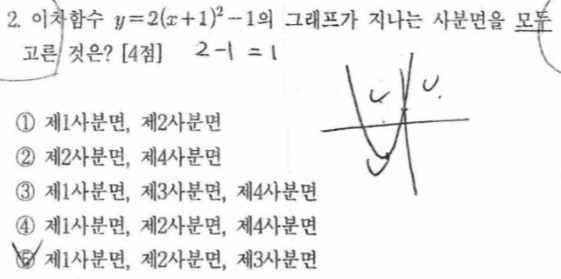 2. 이차함수 y=2(x+1)²-1의 그래프가 지나는 사분면을 모두
고른 것은? [4점] 2-1=1
① 제1사분면, 제2사분면
② 제2사분면, 제4사분면
③ 제1사분면, 제3사분면, 제4사분면
④ 제1사분면, 제2사분면, 제4사분면
⑤ 제1사분면, 제2사분면, 제3사분면